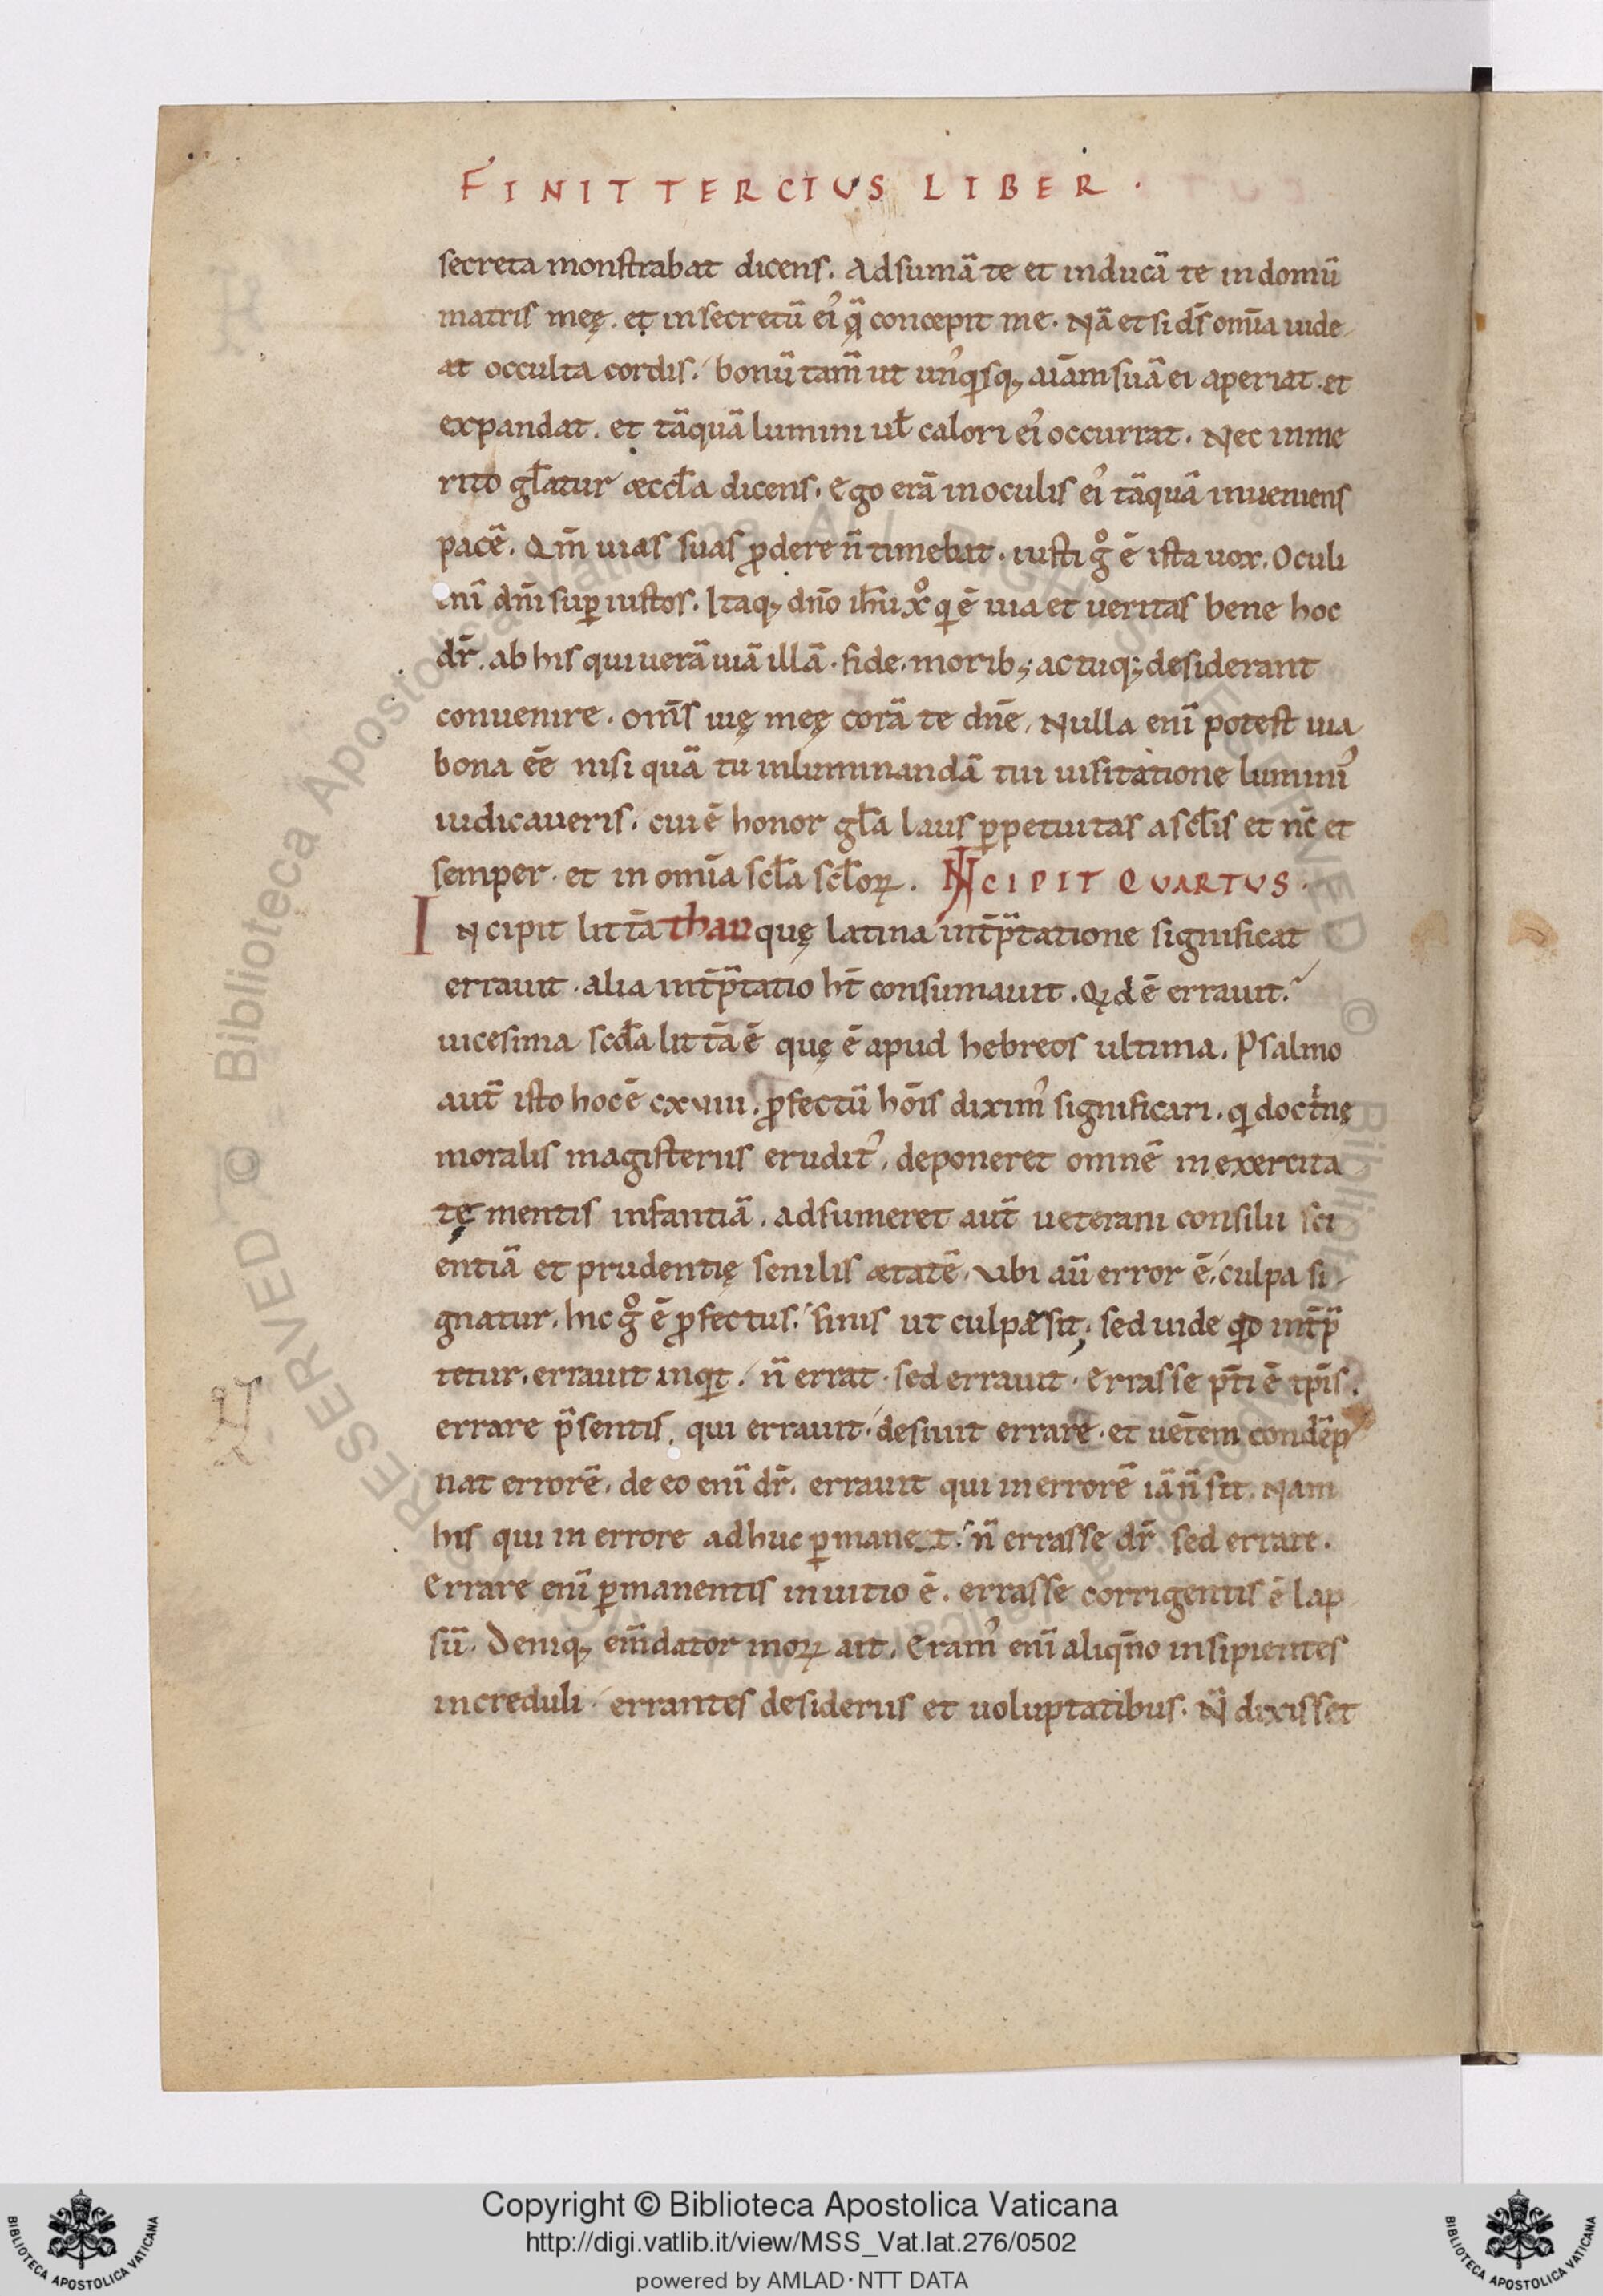 FINIT TERCIVS LIBER .
secreta monstrabat dicens. Adsumā te et inducā te in domū
matris meę. et in secretū ei᾽ q̄ concepit me. Nā et si ds̄ om̄a uide
at occulta cordis. bonū tam̄ ut un᾽qisq; aīam suā ei aperiat. et
expandat. et tāquā lumini ul̄ calori ei᾽ occurrat. Nec inme
rito gl̄atur æccl̄a dicens. Ego erā in oculis ei᾽ tāquā inueniens
pacē. Qm̄ uias suas ꝓdere n̄ timebat. iusti gͦ ē ista uox. Oculi
enī dn̄i suꝑ iustos. Itaq; dn̄o ih̄u xͦ qi ē uia et ueritas bene hoc
dr̄. ab his qui uerā uiā illā. fide. morib; actuq; desiderant
conuenire. om̄s uię meę corā te dn̄e. Nulla enī potest uia
bona eē nisi quā tu inluminandā tui uisitatione lumini᾽
iudicaueris. cui ē honor gl̄a laus ꝑpetuitas a scl̄is et nc̄ et
semper. et in om̄a scl̄a scl̄oꝝ. INCIPIT QVARTVS.
INcipit litt̄a thau quę latina int̄p̄tatione significat
errauit. alia int̄p̄tatio ht̄ consumauit. Qd ē errauit.
uicesima scd̄a litt̄a ē quę ē apud hebreos ultima. Psalmo
aut̄ isto hoc ē cxviii. ꝓfectū hōis dixim᾽ significari. qi doctnę
moralis magisteriis erudit᾽, deponeret omnē inexercita
tę mentis infantiā. adsumeret aut̄ ueterani consilii sci
entiā et prudentię senilis ætatē. Vbi aū error ē. culpa si
gnatur. hic gͦ ē ꝓfectus. finis ut culpæ sit; sed uide qd int̄p̄
tetur. errauit inqit. n̄ errat. sed errauit. Errasse pt̄i ē tp̄is.
errare p̄sentis. qui errauit. desiuit errare. et uet̄em condēp
nat errorē. de eo enī dr̄. errauit qui in errorē iā n̄ sit. Nam
his qui in errore adhuc ꝑmanet. n̄ errasse dr̄ sed errare.
Errare enī ꝑmanentis in uitio ē. errasse corrigentis ē lap
sū. Deniq; em̄dator moꝝ ait. Eram᾽ enī aliqn̄o insipientes
increduli. errantes desideriis et uoluptatibus. N̄ dixisset
Copyright © Biblioteca Apostolica Vaticana
http://digi.vatlib.it/view/MSS_Vat.lat.276/0502
powered by AMLAD·NTT DATA